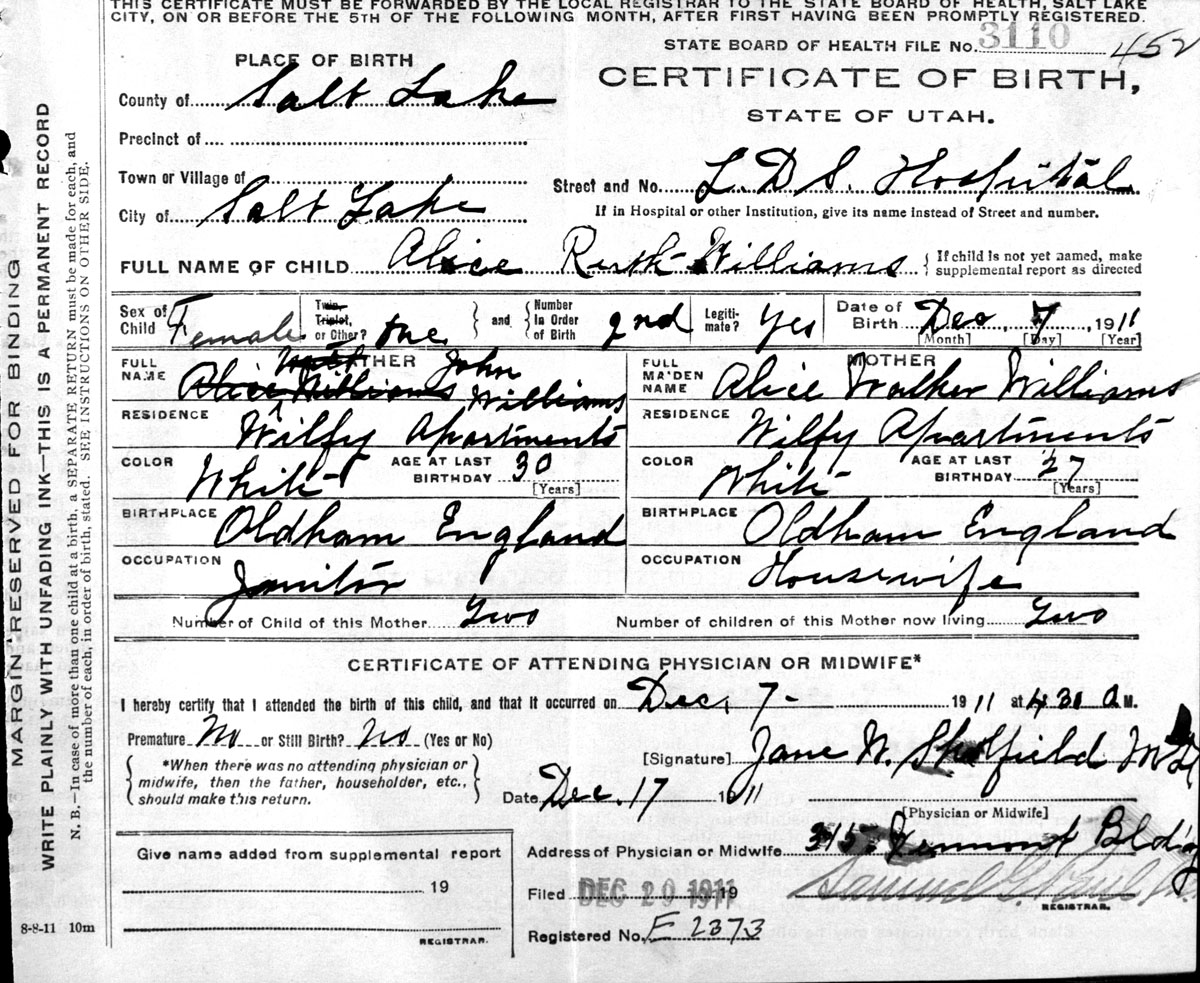 THIS CERTIFICATE MUST BE FORWARDED BY THE LOCAL REGISTRAR TO THE STATE BOARD OF HEALTH, SALT LAKE
CITY, ON OR BEFORE THE 5TH OF THE FOLLOWING MONTH, AFTER FIRST HAVING BEEN PROMPTLY REGISTERED.
STATE BOARD OF HEALTH FILE No. 3110 452
PLACE OF BIRTH
CERTIFICATE OF BIRTH,
STATE OF UTAH.
County of Salt Lake
Precinct of
Town or Village of
Street and No. L.D.S. Hospital
City of Salt Lake
If in Hospital or other Institution, give its name instead of Street and number.
FULL NAME OF CHILD Alice Ruth Williams { If child is not yet named, make supplemental report as directed
Sex of Child Female
Twin, Triplet, or Other? one
and { Number In Order of Birth 2nd
Legiti-mate? Yes
Date of Birth Dec, 7, 1911
[Month] [Day] [Year]
FATHER
FULL NAME Alice Williams John Williams
RESIDENCE Wilfy Apartments
COLOR White AGE AT LAST BIRTHDAY 30 [Years]
BIRTHPLACE Oldham England
OCCUPATION Janitor
MOTHER
FULL MAIDEN NAME Alice Walker Williams
RESIDENCE Wilfy Apartments
COLOR White AGE AT LAST BIRTHDAY 27 [Years]
BIRTHPLACE Oldham England
OCCUPATION Housewife
Number of Child of this Mother Two
Number of children of this Mother now living Two
CERTIFICATE OF ATTENDING PHYSICIAN OR MIDWIFE*
I hereby certify that I attended the birth of this child, and that it occurred on Dec, 7- 1911 at 4 30 a M.
Premature No or Still Birth? No (Yes or No)
[Signature] Jane W. M.D.
*When there was no attending physician or
midwife, then the father, householder, etc.,
should make this return.
Date Dec. 17 1911
[Physician or Midwife]
Address of Physician or Midwife 315 Bldg
Give name added from supplemental report
19
REGISTRAR.
Filed DEC 29 1911 19
Samuel G. Paul
REGISTRAR.
Registered No. E 2373
8-8-11 10m
MARGIN RESERVED FOR BINDING
WRITE PLAINLY WITH UNFADING INK—THIS IS A PERMANENT RECORD
N. B.—In case of more than one child at a birth, a SEPARATE RETURN must be made for each, and
the number of each, in order of birth, stated. SEE INSTRUCTIONS ON OTHER SIDE.